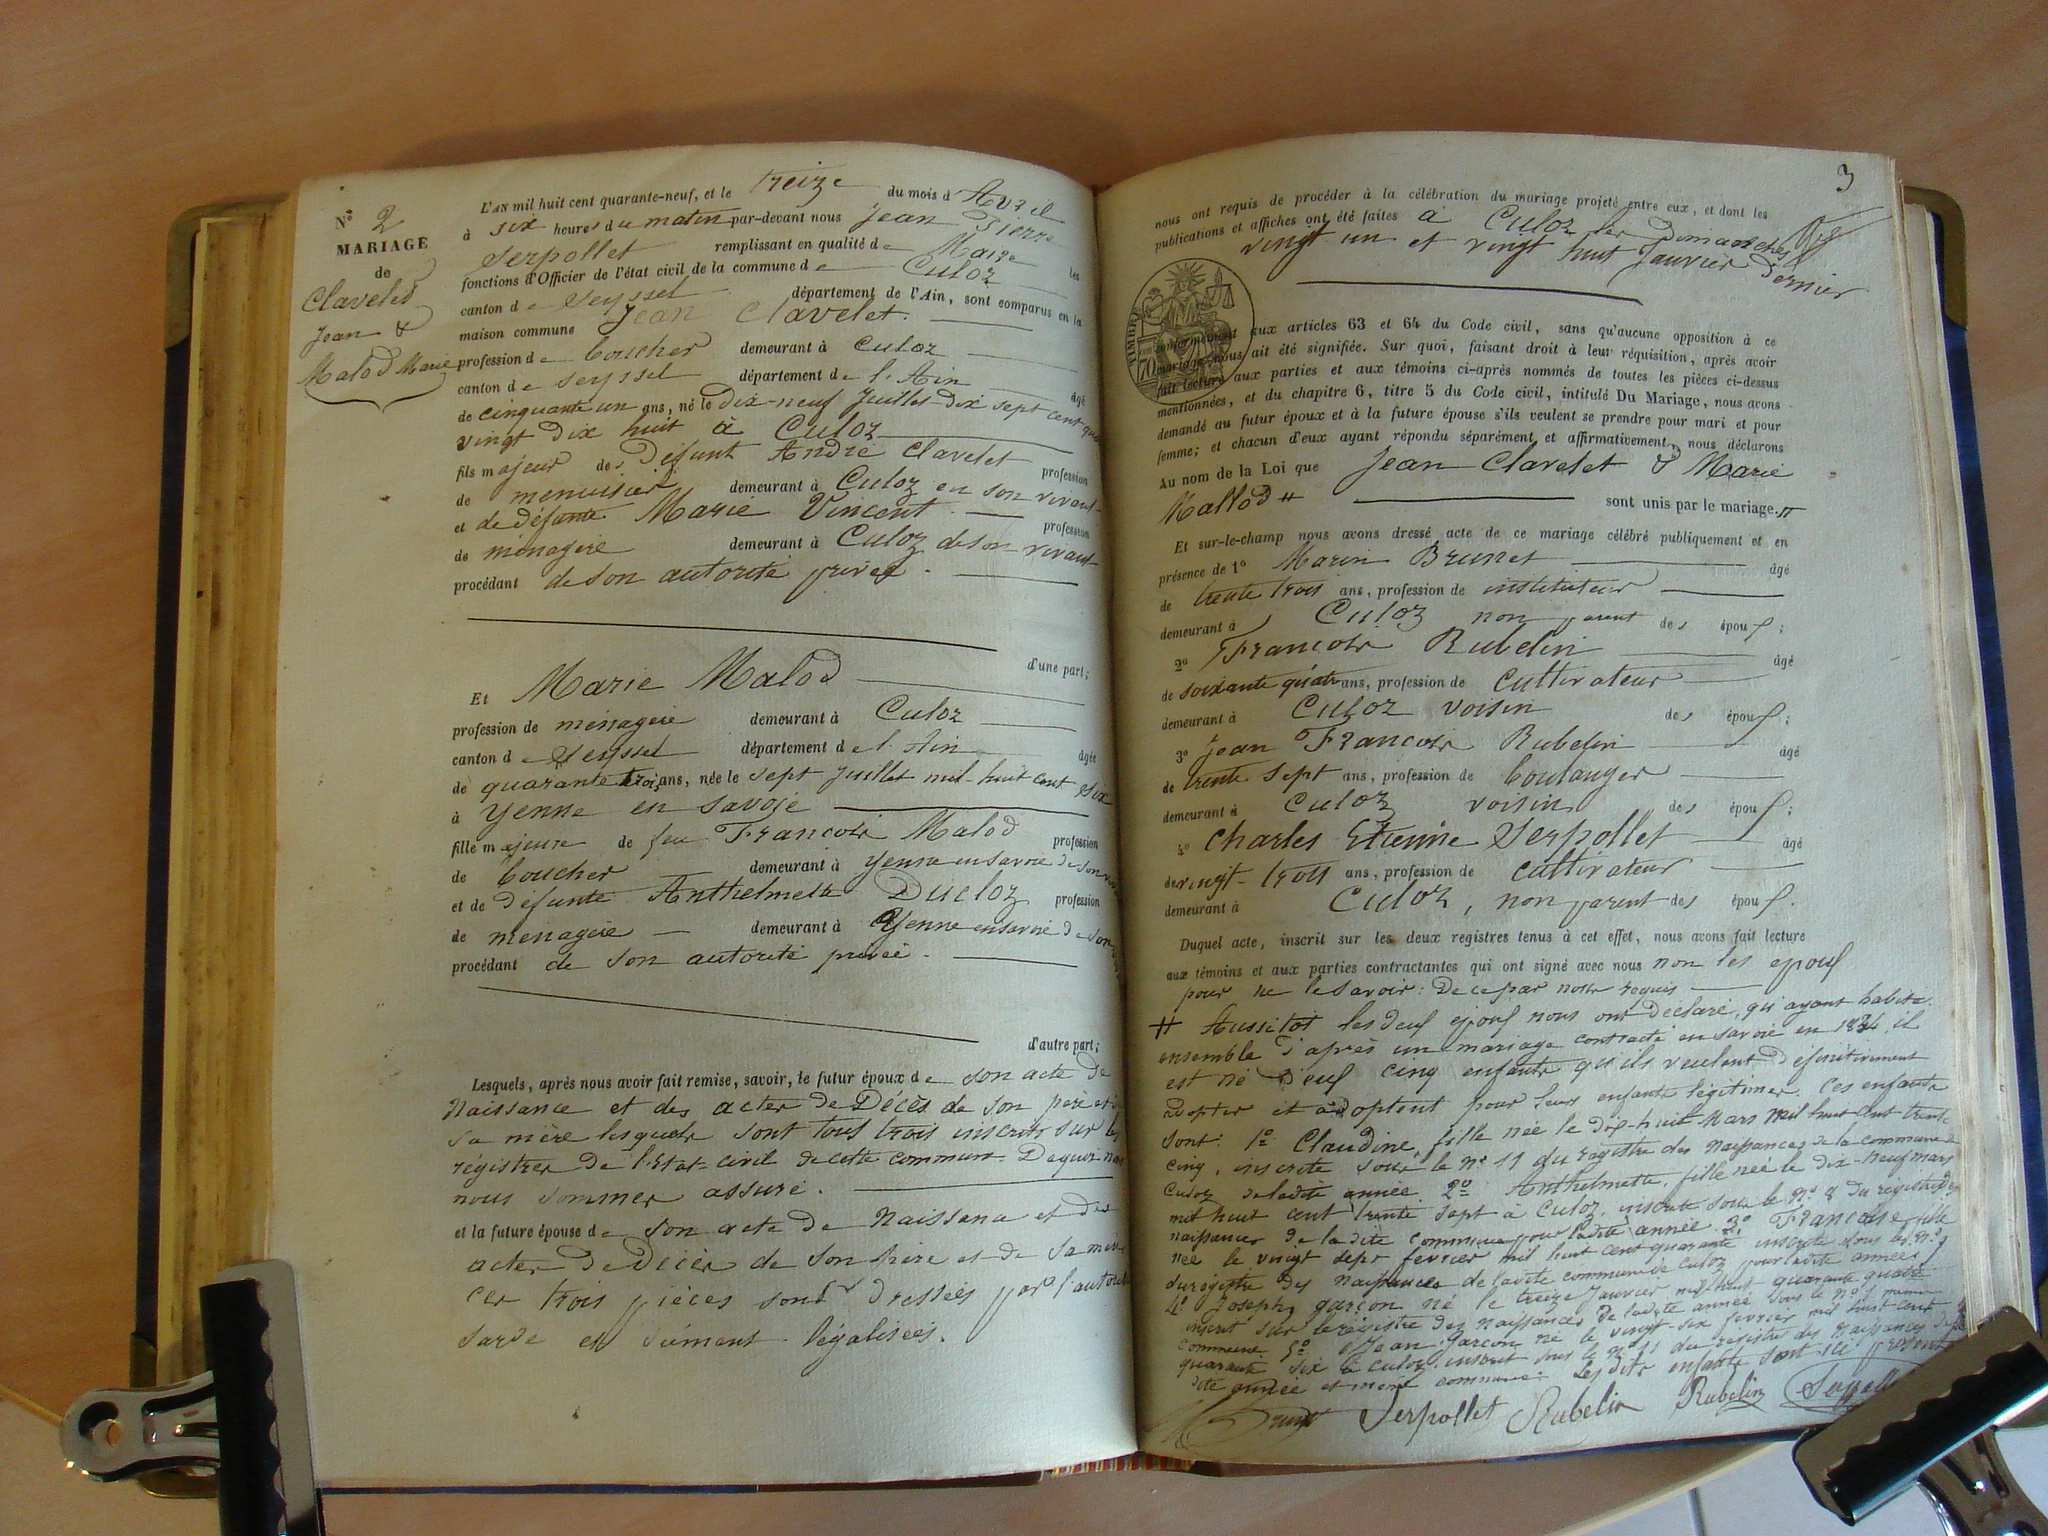 N° 2
MARIAGE
de
Clavelet
Jean &
Malod Marie
L'AN mil huit cent quarante-neuf, et le treize du mois d'Avril
à six heures du matin par-devant nous Jean Pierre
Serpollet remplissant en qualité de Maire les
fonctions d'Officier de l'état civil de la commune de Culoz
canton de Seyssel département de l'Ain, sont comparus en la
maison commune Jean Clavelet.
profession de boucher demeurant à Culoz
canton de Seyssel département de l'Ain âgé
de cinquante un ans, né le Dix-neuf Juillet dix sept cent quatre
vingt dix huit à Culoz
fils majeur de Défunt André Clavelet profession
de menuisier demeurant à Culoz en son vivant
et de défunte Marie Vincent. profession
de ménagère demeurant à Culoz de son vivant
procédant de son autorité privée.
d'une part;
Et Marie Malod
profession de ménagère demeurant à Culoz
canton de Seyssel département de l'Ain âgée
de quarante trois ans, née le sept Juillet mil-huit cent six
à Yenne en Savoie
fille majeure de feu Francois Malod profession
de boucher demeurant à Yenne en Savoie de son
et de défunte Anthelmette Ducloz profession
de ménagère demeurant à Yenne en Savoie de son
procédant de son autorité privée.
d'autre part;
Lesquels, après nous avoir fait remise, savoir, le futur époux de son acte de
Naissance et des actes de Décès de son père et
sa mère lesquels sont tous trois inscrits sur les
régistres de l'Etat-civil de cette commune. Dequoi nous
nous sommes assuré.
et la future épouse de son acte de Naissance et des
actes de Décès de son père et de sa mère
ces trois pièces sont dressées par l'autorité
sarde et dûment légalisées.
3
nous ont requis de procéder à la célébration du mariage projeté entre eux, et dont les
publications et affiches ont été faites à Culoz les Dimanches
vingt-un et vingt huit Janvier dernier
TIMBRE
70
conformément aux articles 63 et 64 du Code civil, sans qu'aucune opposition à ce
mariage nous ait été signifiée. Sur quoi, faisant droit à leur réquisition, après avoir
fait lecture aux parties et aux témoins ci-après nommés de toutes les pièces ci-dessus
mentionnées, et du chapitre 6, titre 5 du Code civil, intitulé Du Mariage, nous avons
demandé au futur époux et à la future épouse s'ils veulent se prendre pour mari et pour
femme; et chacun d'eux ayant répondu séparément et affirmativement, nous déclarons
Au nom de la Loi que Jean Clavelet & Marie
Mallod # sont unis par le mariage.
Et sur-le-champ nous avons dressé acte de ce mariage célébré publiquement et en
présence de 1° Marin Brunet âgé
de trente trois ans, profession de instituteur
demeurant à Culoz non parent des époux;
2° Francois Rubelin âgé
de soixante quatre ans, profession de cultivateur
demeurant à Culoz voisin des époux;
3° Jean Francois Rubelin âgé
de trente sept ans, profession de boulanger
demeurant à Culoz voisin des époux;
4° Charles Etienne Serpollet âgé
de vingt-trois ans, profession de cultivateur
demeurant à Culoz, non parent des époux.
Duquel acte, inscrit sur les deux registres tenus à cet effet, nous avons fait lecture
aux témoins et aux parties contractantes qui ont signé avec nous non les époux
pour ne le savoir: De ce par nous requis
# Aussitôt les deux époux nous ont déclaré, qu'ayant habité
ensemble d'après un mariage contracté en Savoie en 1834, il
est né d'eux cinq enfants qu'ils veulent définitivement
adopter et adoptent pour leurs enfants légitimes. Ces enfants
sont: 1° Claudine, fille née le dix-huit Mars mil huit cent trente
cinq, inscrite sous le n° 11 du registre des Naissances de la commune de
Culoz de ladite année. 2° Anthelmette, fille née le dix-neuf mars
mil huit cent trente sept à Culoz, inscrite sous le n° 8 du régistre des
naissances de la dite commune pour ladite année. 3° Francoise, fille
née le vingt sept février mil huit cent quarante inscrite sous le n°
du registre des Naissances de ladite commune de Culoz pour ladite année
4° Joseph, garçon né le treize Janvier mil huit quarante quatre
inscrit sur le registre des Naissances de ladite année sous le n° 1
commune. 5° Jean garçon né le vingt-six février mil huit cent
quarante six à Culoz, inscrit sous le n° 11 du registre des Naissances de la
dite année et même commune. Lesdits enfants sont ici présents
Brunet Serpollet Rubelin Rubelin Serpollet